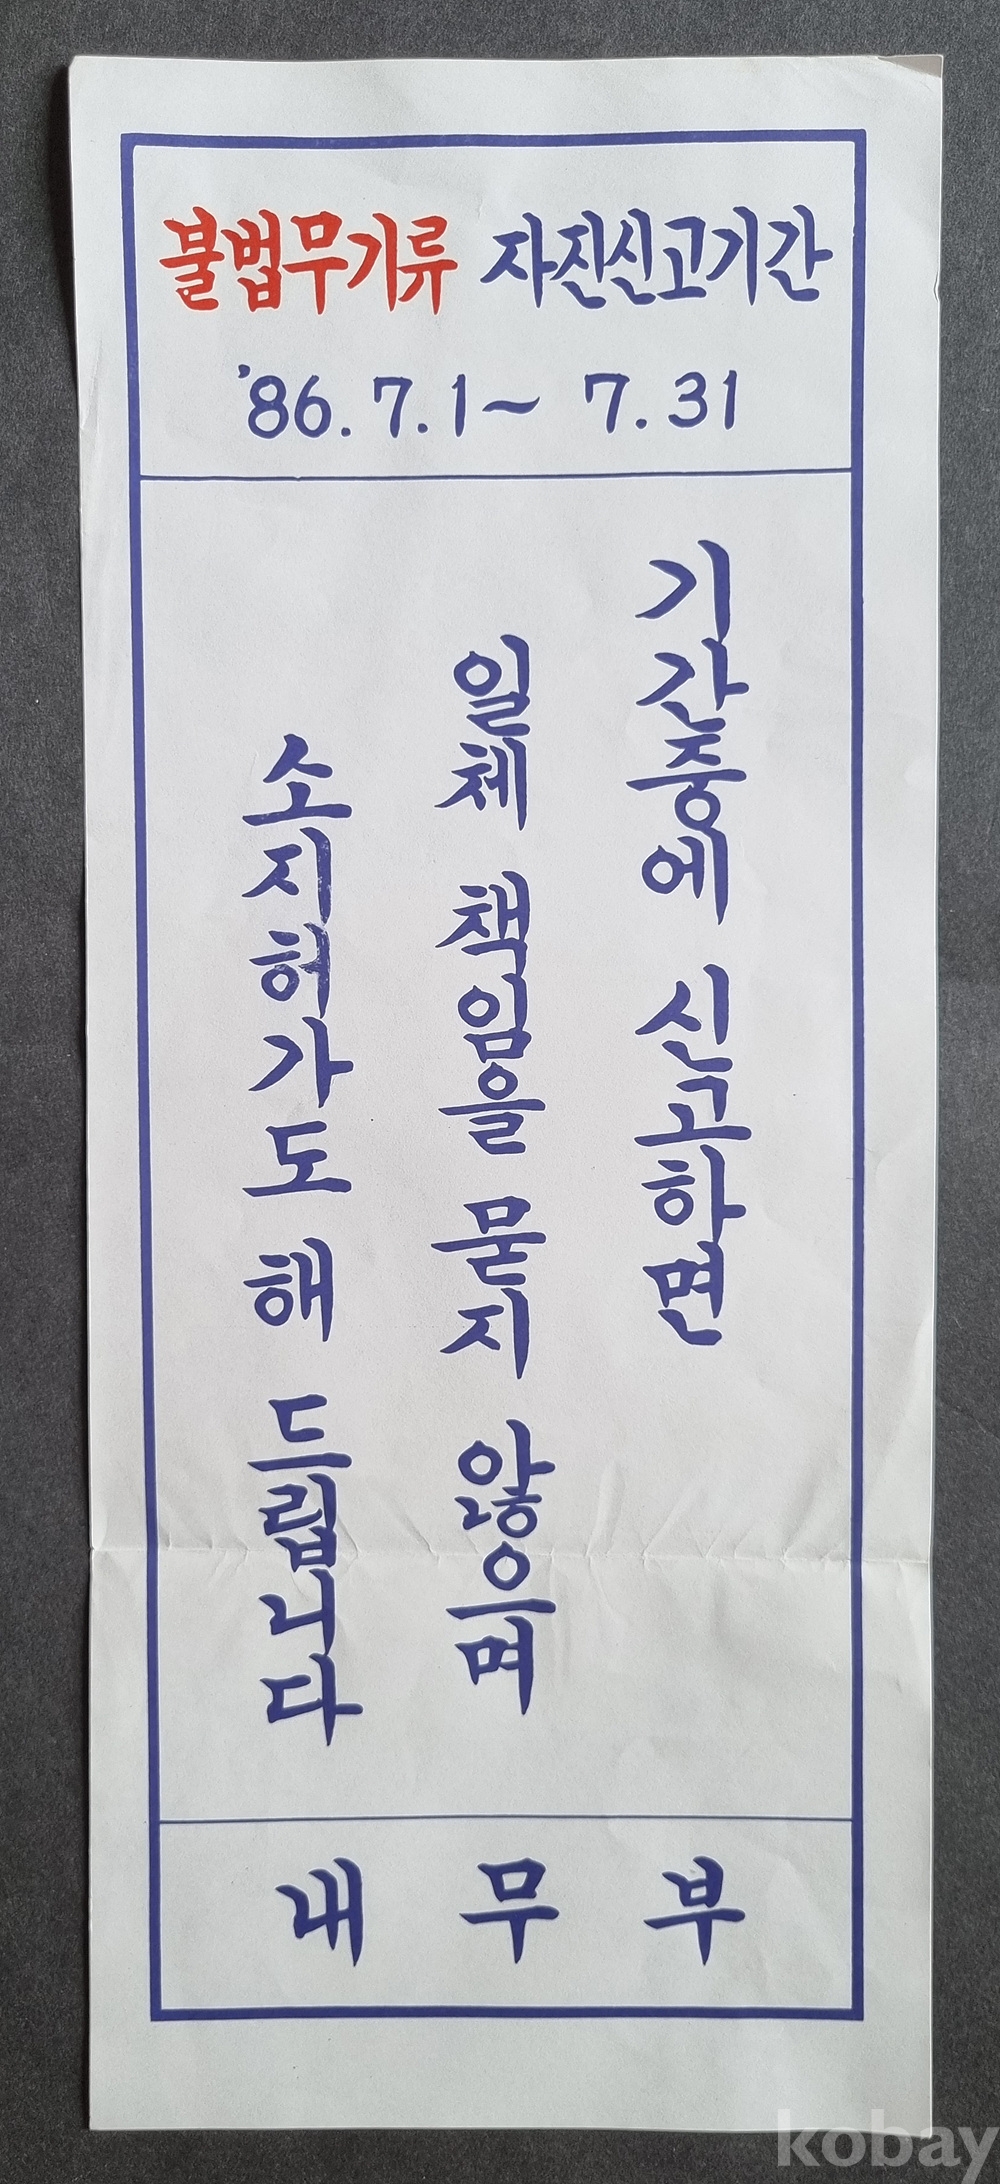 불법무기류 자진신고기간
'86. 7. 1~ 7. 31
기간중에 신고하면
일체 책임을 묻지 않으며
소지허가도 해 드립니다
내무부
kobay